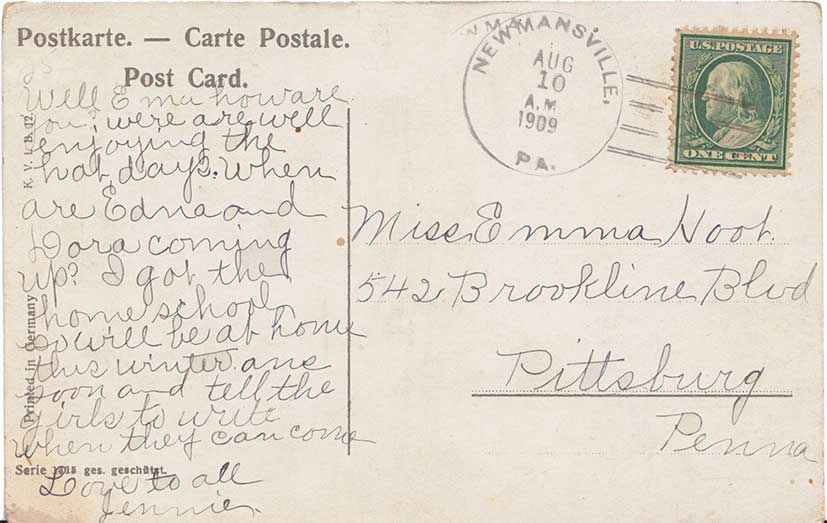 Postkarte. — Carte Postale.
Post Card.
NEWMANSVILLE,
AUG
10
A.M.
1909
PA.
U.S. POSTAGE
ONE CENT
Well Ema how are
you; were are well
enjoying the
hot days. When
are Edna and
Dora coming
up? I got the
home school
so will be at home
this winter. ans
soon and tell the
girls to write
when they can come
Love to all
Jennie.
Miss Emma Hoot.
542 Brookline Blvd
Pittsburg
Penna
K. V. i. B. 12.
Printed in Germany
Serie 1415 ges. geschützt.